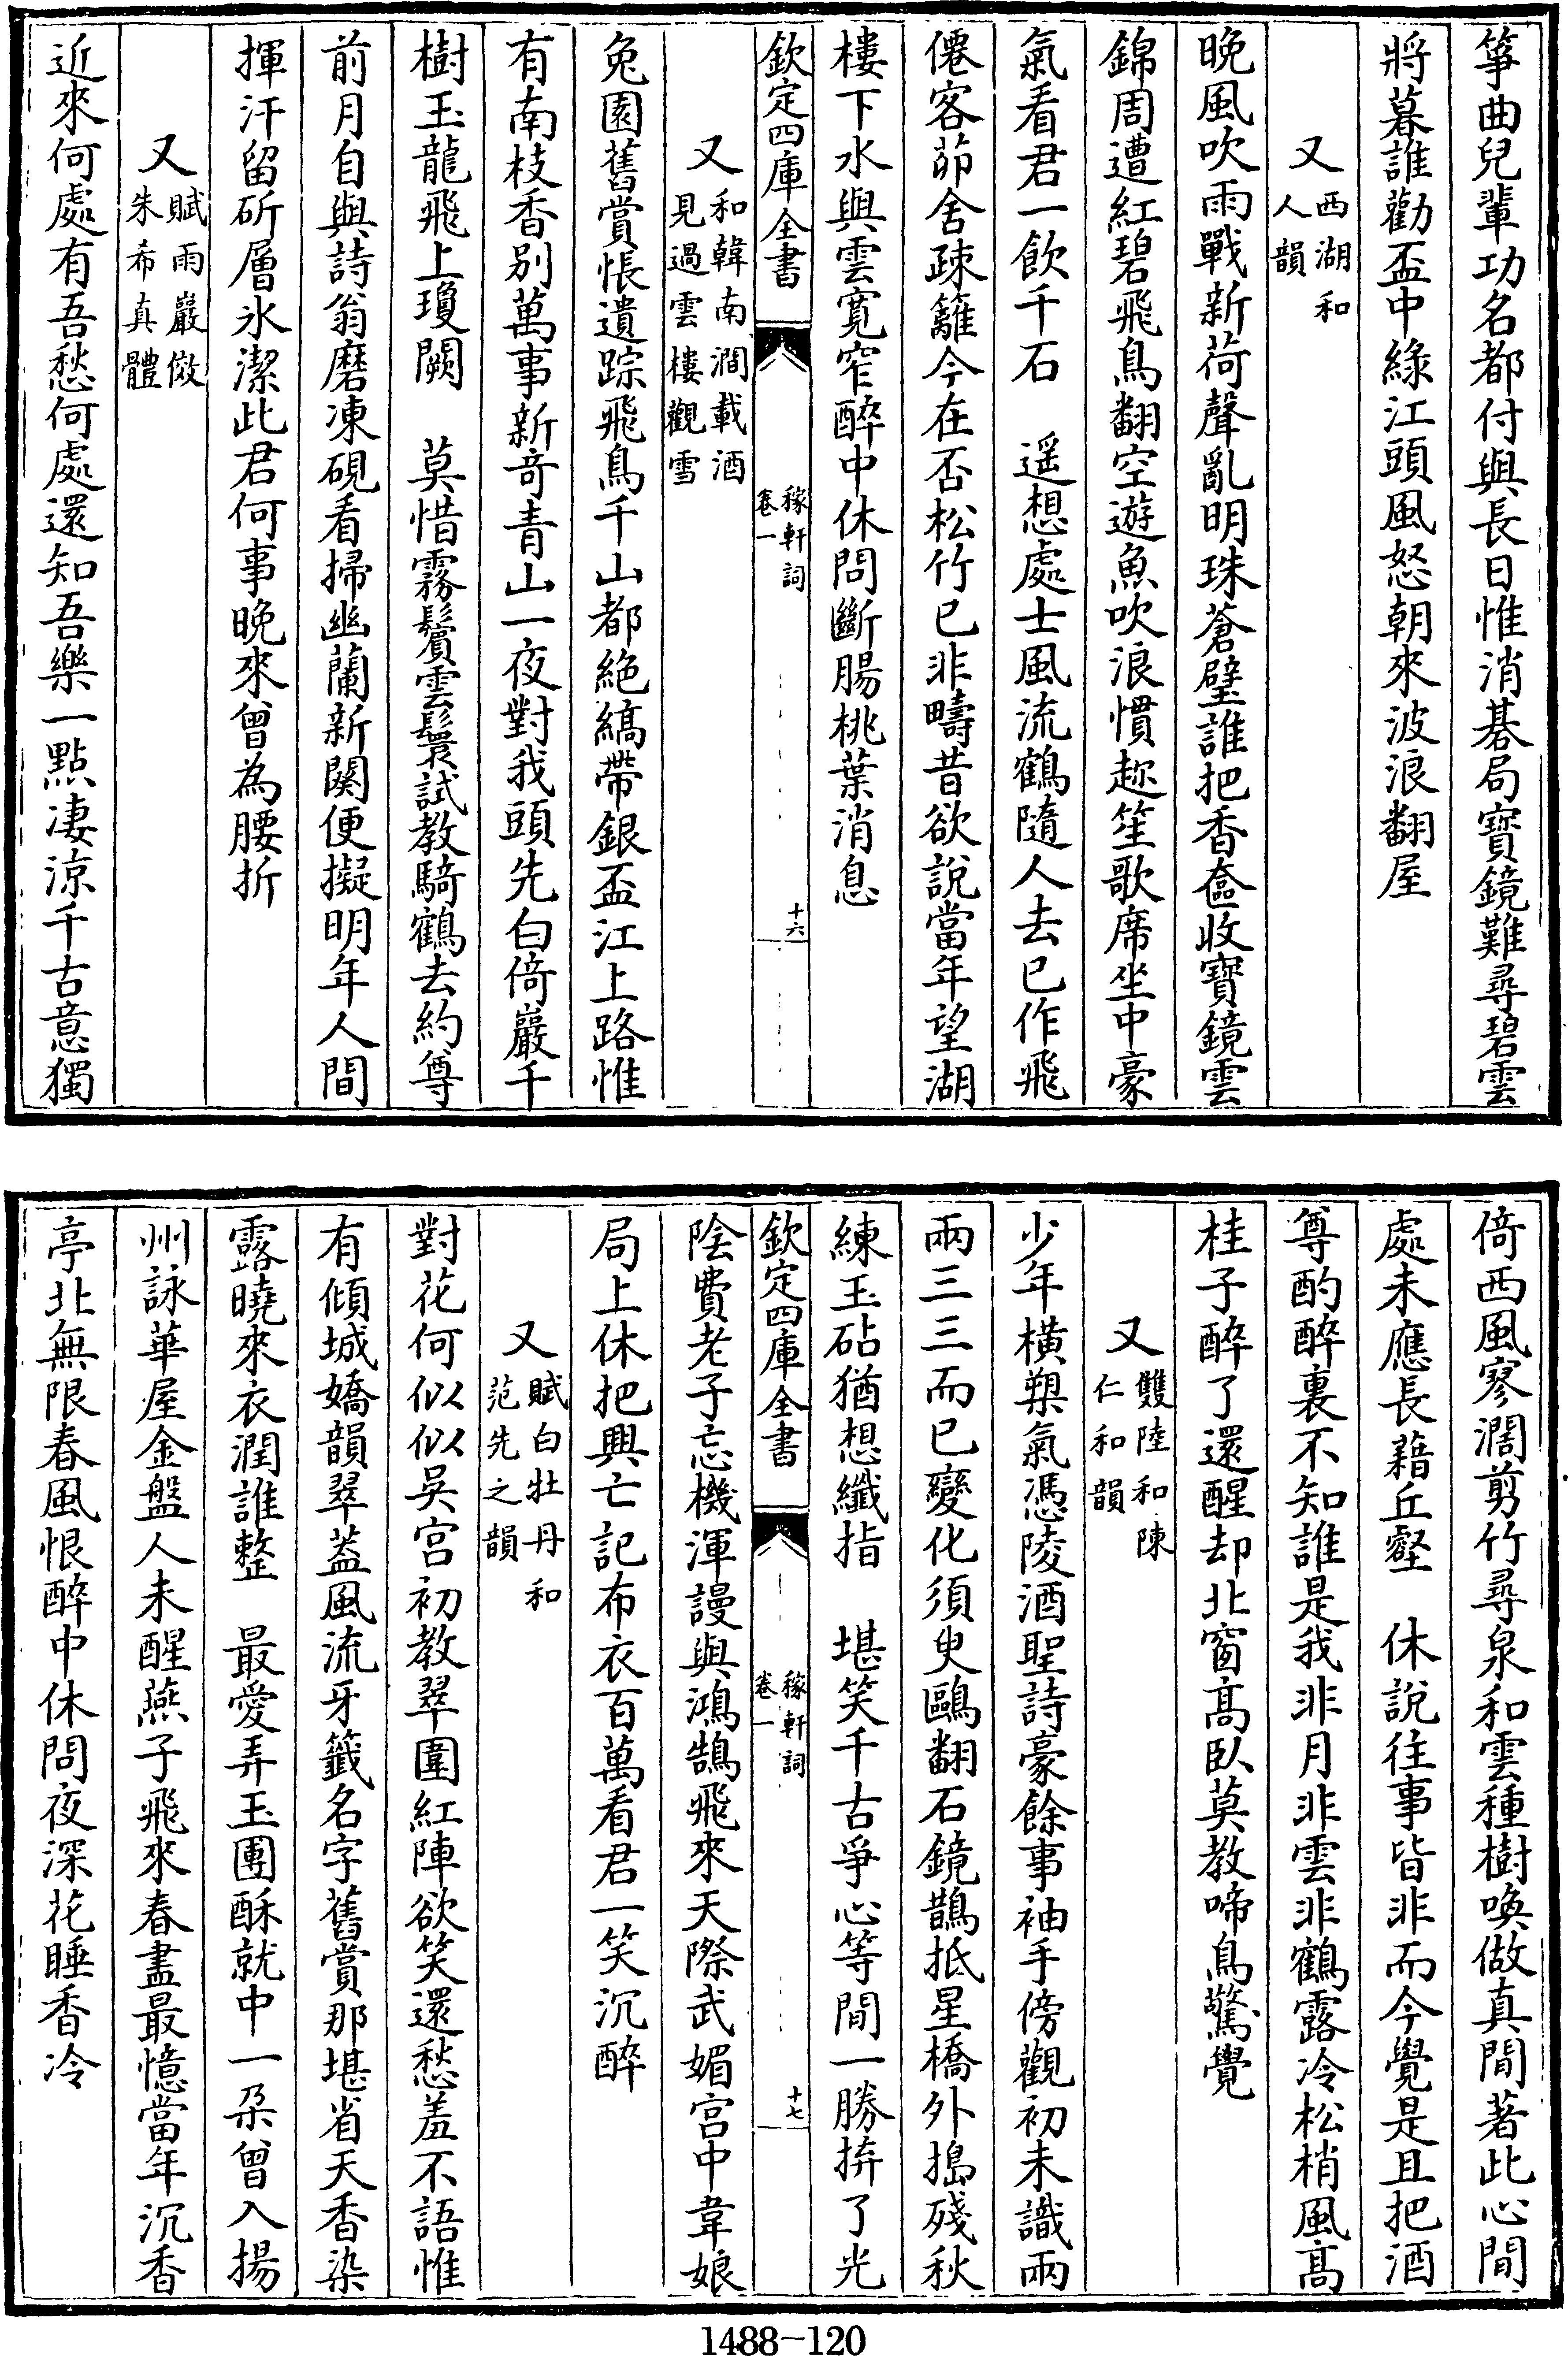 箏曲兒輩功名都付與長日惟消碁局寶鏡難尋碧雲
將暮誰勸盃中綠江頭風怒朝來波浪翻屋
又西湖和
人韻
晚風吹雨戰新荷聲亂明珠蒼璧誰把香奩收寶鏡雲
錦周遭紅碧飛鳥翻空遊魚吹浪慣趂笙歌席坐中豪
氣看君一飲千石　遥想處士風流鶴隨人去已作飛
僊客茆舍疎籬今在否松竹已非疇昔欲說當年望湖
樓下水與雲寛窄醉中休問斷腸桃葉消息
欽定四庫全書
稼軒詞
卷一
十六
又和韓南澗載酒
見過雲樓觀雪
兔園舊賞悵遺踪飛鳥千山都絶縞帶銀盃江上路惟
有南枝香别萬事新竒青山一夜對我頭先白倚巖千
樹玉龍飛上瓊闕　莫惜霧鬢雲鬟試教騎鶴去約尊
前月自與詩翁磨凍硯看掃幽蘭新闋便擬明年人間
揮汗留斫層氷潔此君何事晚來曾為腰折
又賦雨巖傚
朱希真體
近來何處有吾愁何處還知吾樂一點凄涼千古意獨
倚西風寥濶剪竹尋泉和雲種樹喚做真閒著此心閒
處未應長藉丘壑　休說往事皆非而今覺是且把酒
尊酌醉裏不知誰是我非月非雲非鶴露冷松梢風髙
桂子醉了還醒却北窗髙臥莫教啼鳥驚覺
又雙陸和陳
仁和韻
少年橫槊氣憑陵酒聖詩豪餘事袖手傍觀初未識兩
兩三三而已變化須臾鷗翻石鏡鵲抵星橋外搗殘秋
練玉砧猶想纖指　堪笑千古爭心等間一勝拚了光
陰費老子忘機渾謾與鴻鵠飛來天際武媚宫中韋娘
局上休把興亡記布衣百萬看君一笑沉醉
欽定四庫全書
稼軒詞
卷一
十七
又賦白牡丹和
范先之韻
對花何似似吳宫初教翠圍紅陣欲笑還愁羞不語惟
有傾城嬌韻翠葢風流牙籤名字舊賞那堪省天香染
露曉來衣潤誰整　最愛弄玉團酥就中一朶曾入揚
州詠華屋金盤人未醒燕子飛來春盡最憶當年沉香
亭北無限春風恨醉中休問夜深花睡香冷
1488-120